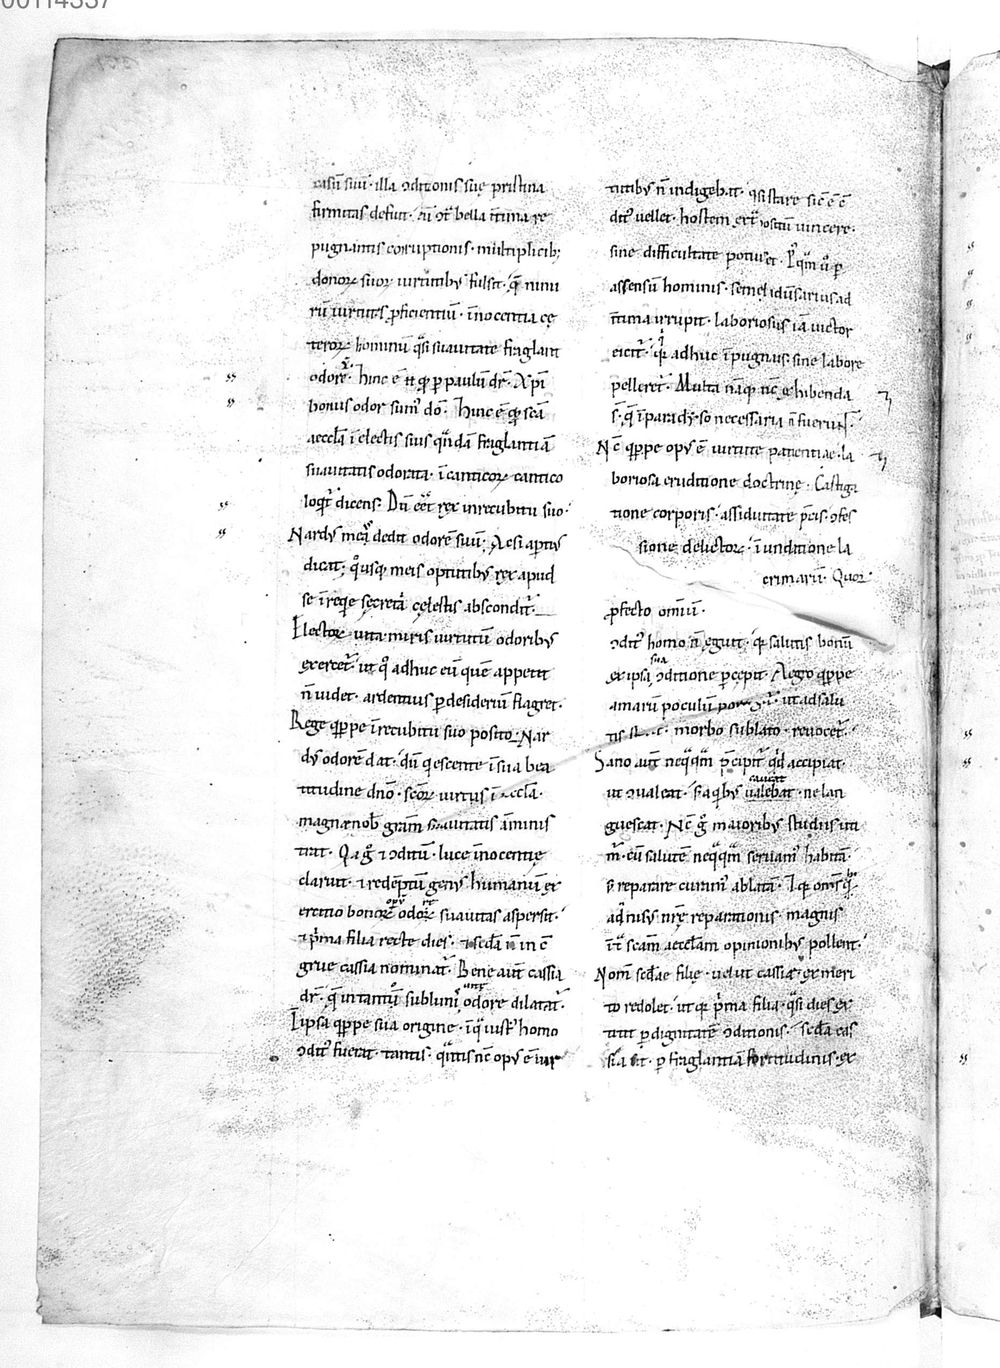 00114337
casū suū· illa ↄditionis suę pristina
firmitas defuit· cū ꝯͭ bella ītima re
pugnantis corruptionis· multiplicibꝫ
donoꝝ suoꝝ uirtutibꝰ fulsit· q̄ nimi
rū uirtutes ꝓficientiū· īnocentia cę
teroꝝ hominū q̈si suauitate fraglant
odore᷒· hinc ē ꝙ ꝑ paulū dr̄· Xp̄i
bonus odor sumꝰ dō· Hinc ē ꝙ sc̄a
aecclā ī electis suis q̄ndā fraglantiā
suauitatis odorata· ī canticoꝝ cantico
loq̄t᷒ dicens· Dū eēt rex in recubitu suo·
Nardꝰ mea dedit odorē suū· Acsi aptiꝰ
dicat· q̊usqꝫ meis optutibꝰ rex apud
se ī reqͥe secreta cęlestis abscondit᷒·
Electoꝝ uita miris uirtutū odoribꝰ
exercet᷒· ut q̊ adhuc eū quē appetit
n̄ uidet· ardentius ꝑ desideriū flagret·
Rege qͥppe ī recubitu suo posito· Nar
dꝰ odorē dat· dū qͥescente ī sua bea
titudine dn̄o· sc̄oꝝ uirtus ī ecclā·
magnæ nob̄ gram̄ suauitatis āminis
trat· Qͥa g̊ ⁊ ↄditū· luce īnocentię
claruit· ⁊ redēptū genꝰ humanū ex
ercitio bonoꝝ opꝰ odoꝝ suauitas aspersit·
⁊ pͥma filia recte dies· ⁊ secd̄a n̄ in cō
grue cassia nominat᷒· Bene aut̄ cassia
dr̄· q̄ in tantū sublimi odore dilatat᷒·
I ipsa qͥppe sua origine· ī q̈ iustꝰ homo
ↄditꝰ fuerat· tantis· q̈ntis nc̄ opꝰ ē uir
tutibꝰ n̄ indigebat· q̈si stare sic ē ē
ditꝰ uellet· hostem ext᷒ positū uincere·
sine difficultate potuiset· Pͦq̈m ū ꝑ
assensū hominis· semel idū sarius ad
ītima irrupit· laboriosius iā uictor
eicit᷒· qͥ adhuc īpugnās sine labore
pelleret᷒· Multa nāqꝫ nc̄ exhibenda
s̄· q̄ ī paradyso necessaria n̄ fuer̄·
Nc̄ qͥppe opꝰ ē uirtute patientiae· la
boriosa eruditione doctrinę· Castiga
tione corporis· assiduitate p̄cis· ↄfes
sione delictoꝝ· īunditione la
crimarū· Quoꝝ
ꝓfecto omiū·
ↄditꝰ homo n̄ eguit· qͥ salutis bonū
ex ipsa sua ↄditione ꝑcepit· Aegro qͥppe
amarū poculū porrigit᷒· ut ad salu
tis st..t· morbo sublato· reuocet᷒·
Sano aut̄ neq̈q̈m p̄cipit᷒ qͥd accipiat·
ut ↄualeat· s; a qͥbꝰ caueat ualebat· ne lan
guescat· Nc̄ g̊ maioribꝰ studiis uti
m᷒· cū salutē neq̈q̈m seruamꝰ habitā·
s; reparare curamꝰ ablatā· Iqꝫ om̄s qͥ·
ad nisꝰ nr̄ę reparationis· magnis
īt̄ scam̄ aeccl̄am opinionibꝰ pollent·
Nom̄ secdae filię· uelut cassia· ex meri
to redolet· ut qꝫ pͥma filia· q̈si dies ex
titit ꝑ dignitatē ↄditionis· secd̄a cas
sia sit· ꝑ fraglantiā fortitudinis· ex